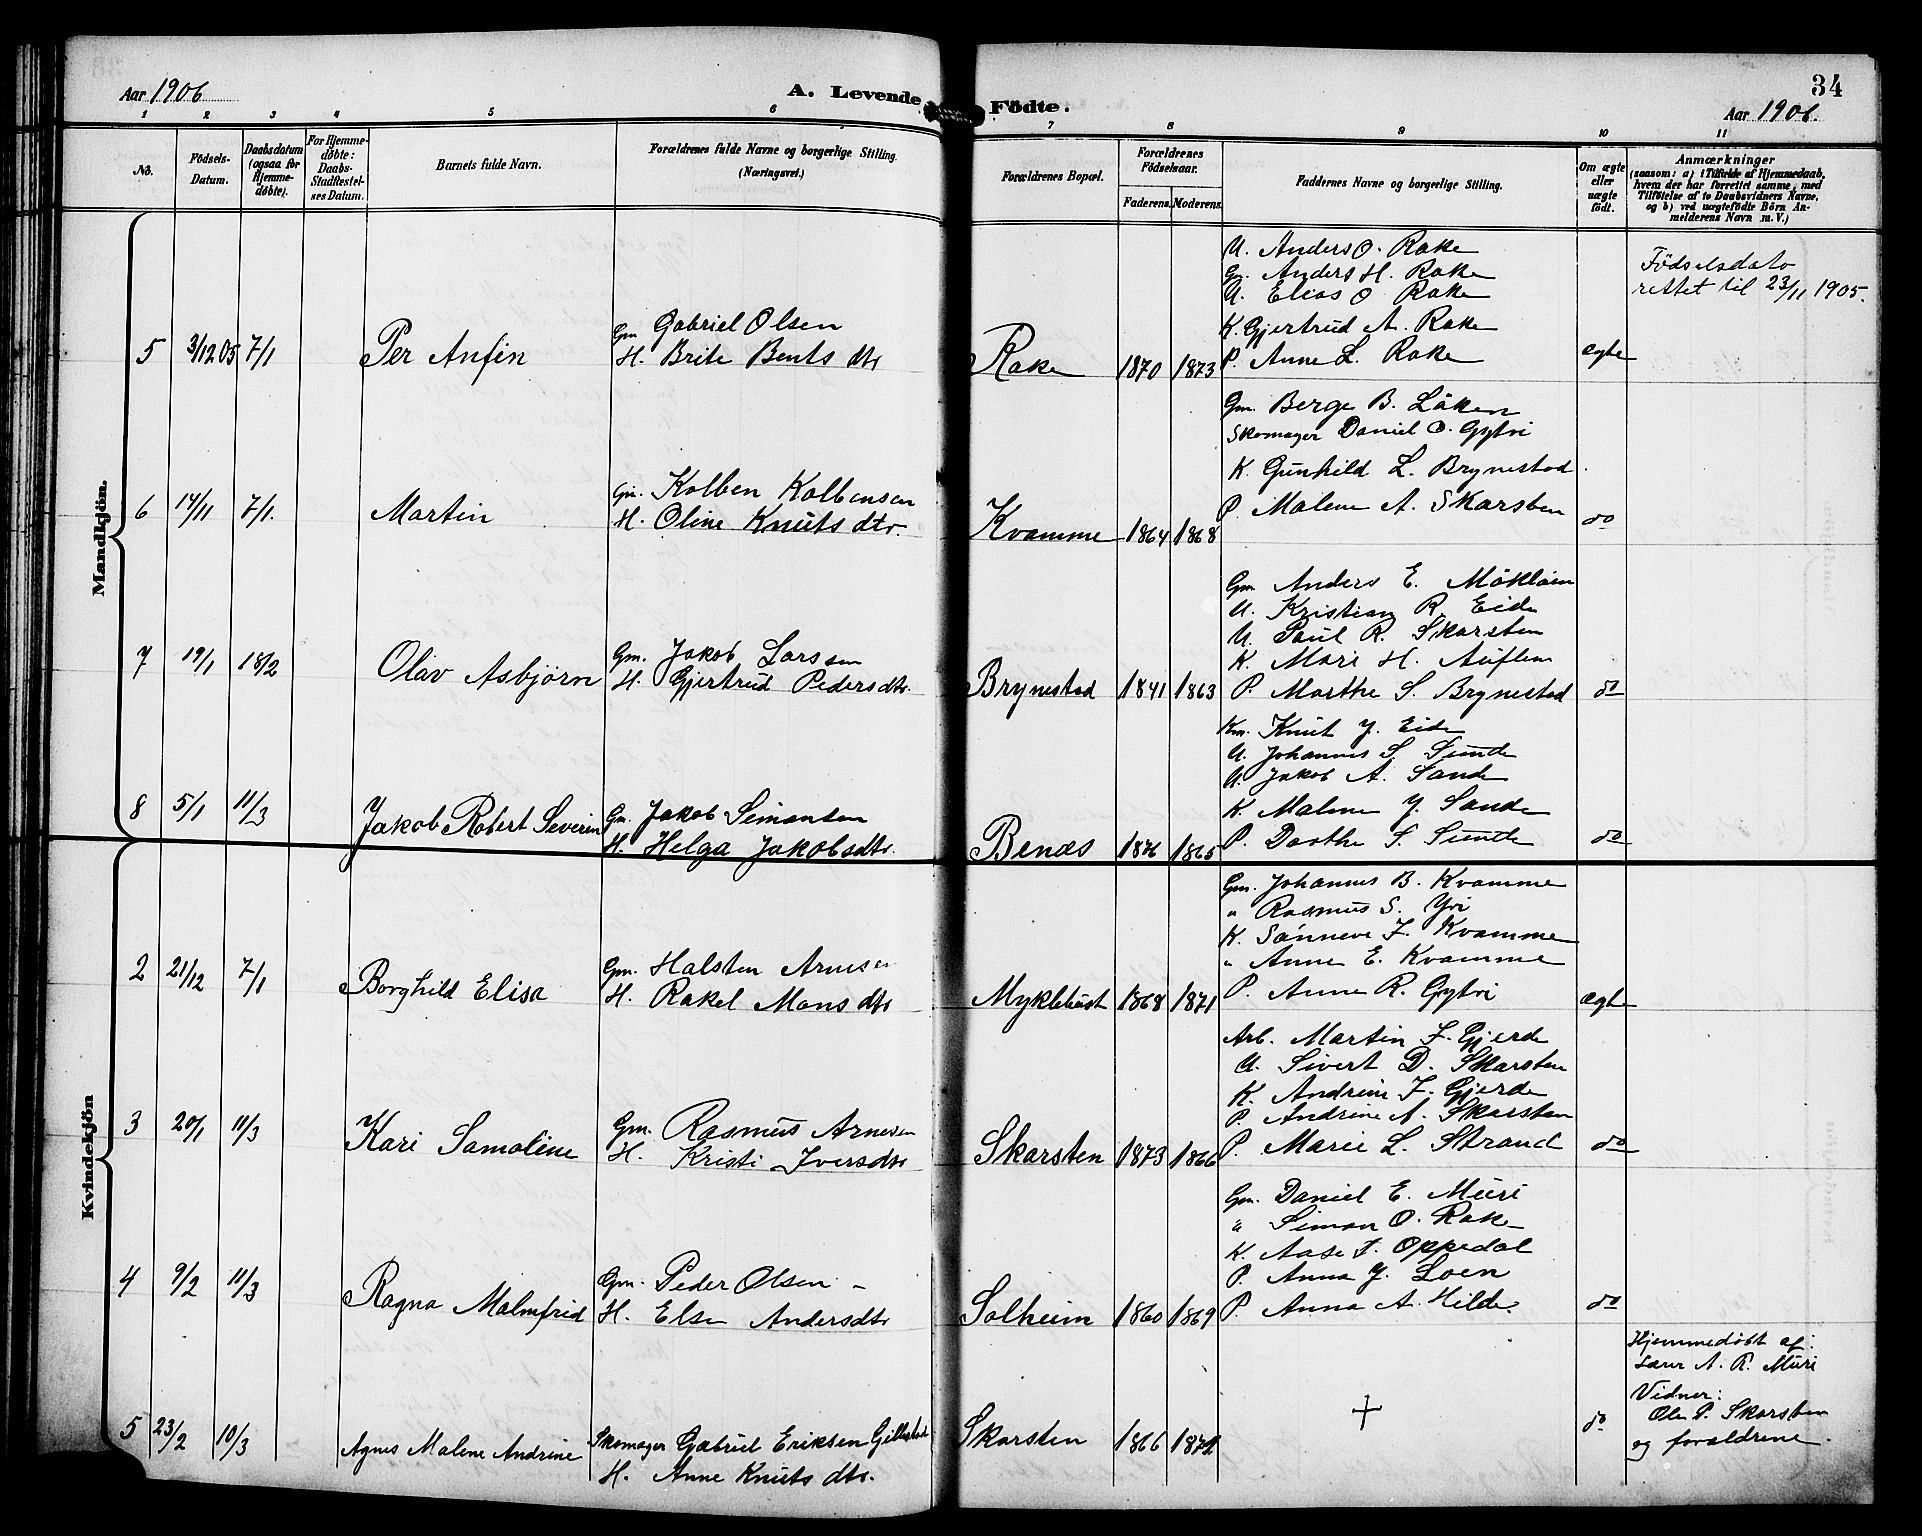 34
Aar 1906
A. Levende Födte.
Aar 1906.
1 2 3 4 5 6 7 8 9 10 11
No.
Födsels-
Datum.
Daabsdatum
(ogsaa för
Hjemme-
döbte).
For Hjemme-
døbte:
Daabs-
Stadfæstel-
ses Datum.
Barnets fulde Navn.
Forældrenes fulde Navne og borgerlige Stilling.
(Næringsvei.)
Forældrenes Bopæl.
Forældrenes
Födselsaar.
Faderens. Moderens.
Faddernes Navne og borgerlige Stilling.
Om ægte
eller
uægte
født.
Anmærkninger
(saasom: a) i Tilfælde af Hjemmedaab,
hvem der har forrettet samme, med
Tilföielse af to Daabsvidners Navne,
og b) ved uægtefödte Börn An-
melderens Navn m. V.)
Mandkjön.
5 3/12 05 7/1 Per Anfin
Gm Gabriel Olsen
H. Brite Bentsdtr
Rake 1870 1873
U. Anders O. Rake
Gm. Anders H. Rake
U. Elias O Rake
K. Gjertrud A. Rake
P. Anne L. Rake
ægte
Födselsdato
rettet til 23/11 1905.
6 14/11 7/1. Martin
Gm. Kolben Kolbensen
H. Oline Knutsdtr.
Kvamme 1864 1868
Gm. Berge B. Löken
Skomager Daniel O. Gytri
K. Gunhild L. Brynestad
P. Malene A. Skarsten
do
7 19/1 18/2 Olav Asbjørn
Gm. Jakob Larssen
H. Gjertrud Pedersdtr.
Brynestad 1841 1863
Gm Anders E. Mökløen
U. Kristian R. Eide
U. Paul R. Skarsten
K. Mari H. Auflem
P. Marthe S. Brynestad
do
8 5/1 11/3 Jakob Robert Severin
Gm. Jakob Simonsen
H. Helga Jakobsdtr.
Benæs 1876 1865
Km. Knut J. Eide
U. Johannes S. Sunde
U. Jakob A. Sande
K. Malene J. Sande
P. Dorthe S. Sunde
do
Kvindekjön
2 21/12 7/1 Borghild Elisa
Gm. Halsten Arnesen
H. Rakel Monsdtr
Myklebust 1868 1871
Gm. Johannes B. Kvamme
" Rasmus S. Yri
K. Sönneve J. Kvamme
" Anne E. Kvamme
P. Anne R. Gytri
ægte
3 20/1 11/3 Kari Samoline
Gm. Rasmus Arnesen
H. Kristi Iversdtr
Skarsten 1873 1866
Arb. Martin J. Gjerde
U. Sivert D. Skarsten
K. Andrine J. Gjerde
P. Andrine A. Skarsten
P. Marie L. Strand
do
4 9/2 11/3 Ragna Malmfrid
Gm. Peder Olsen
H. Else Andersdtr
Solheim 1860 1869
Gm. Daniel E. Muri
" Simon O. Rake
K. Aase J. Oppedal
P. Anna J. Loen
P. Anna A. Hilde
do
5 23/2 10/3 Agnes Malene Andrine
Skomager Gabriel Eriksen
H. Anne Knutsdtr.
Skarsten 1866 1871
+
do
Hjemmedöbt af:
Lærer A. R. Muri
Vidner:
Ole P. Skarsten
og forældrene.